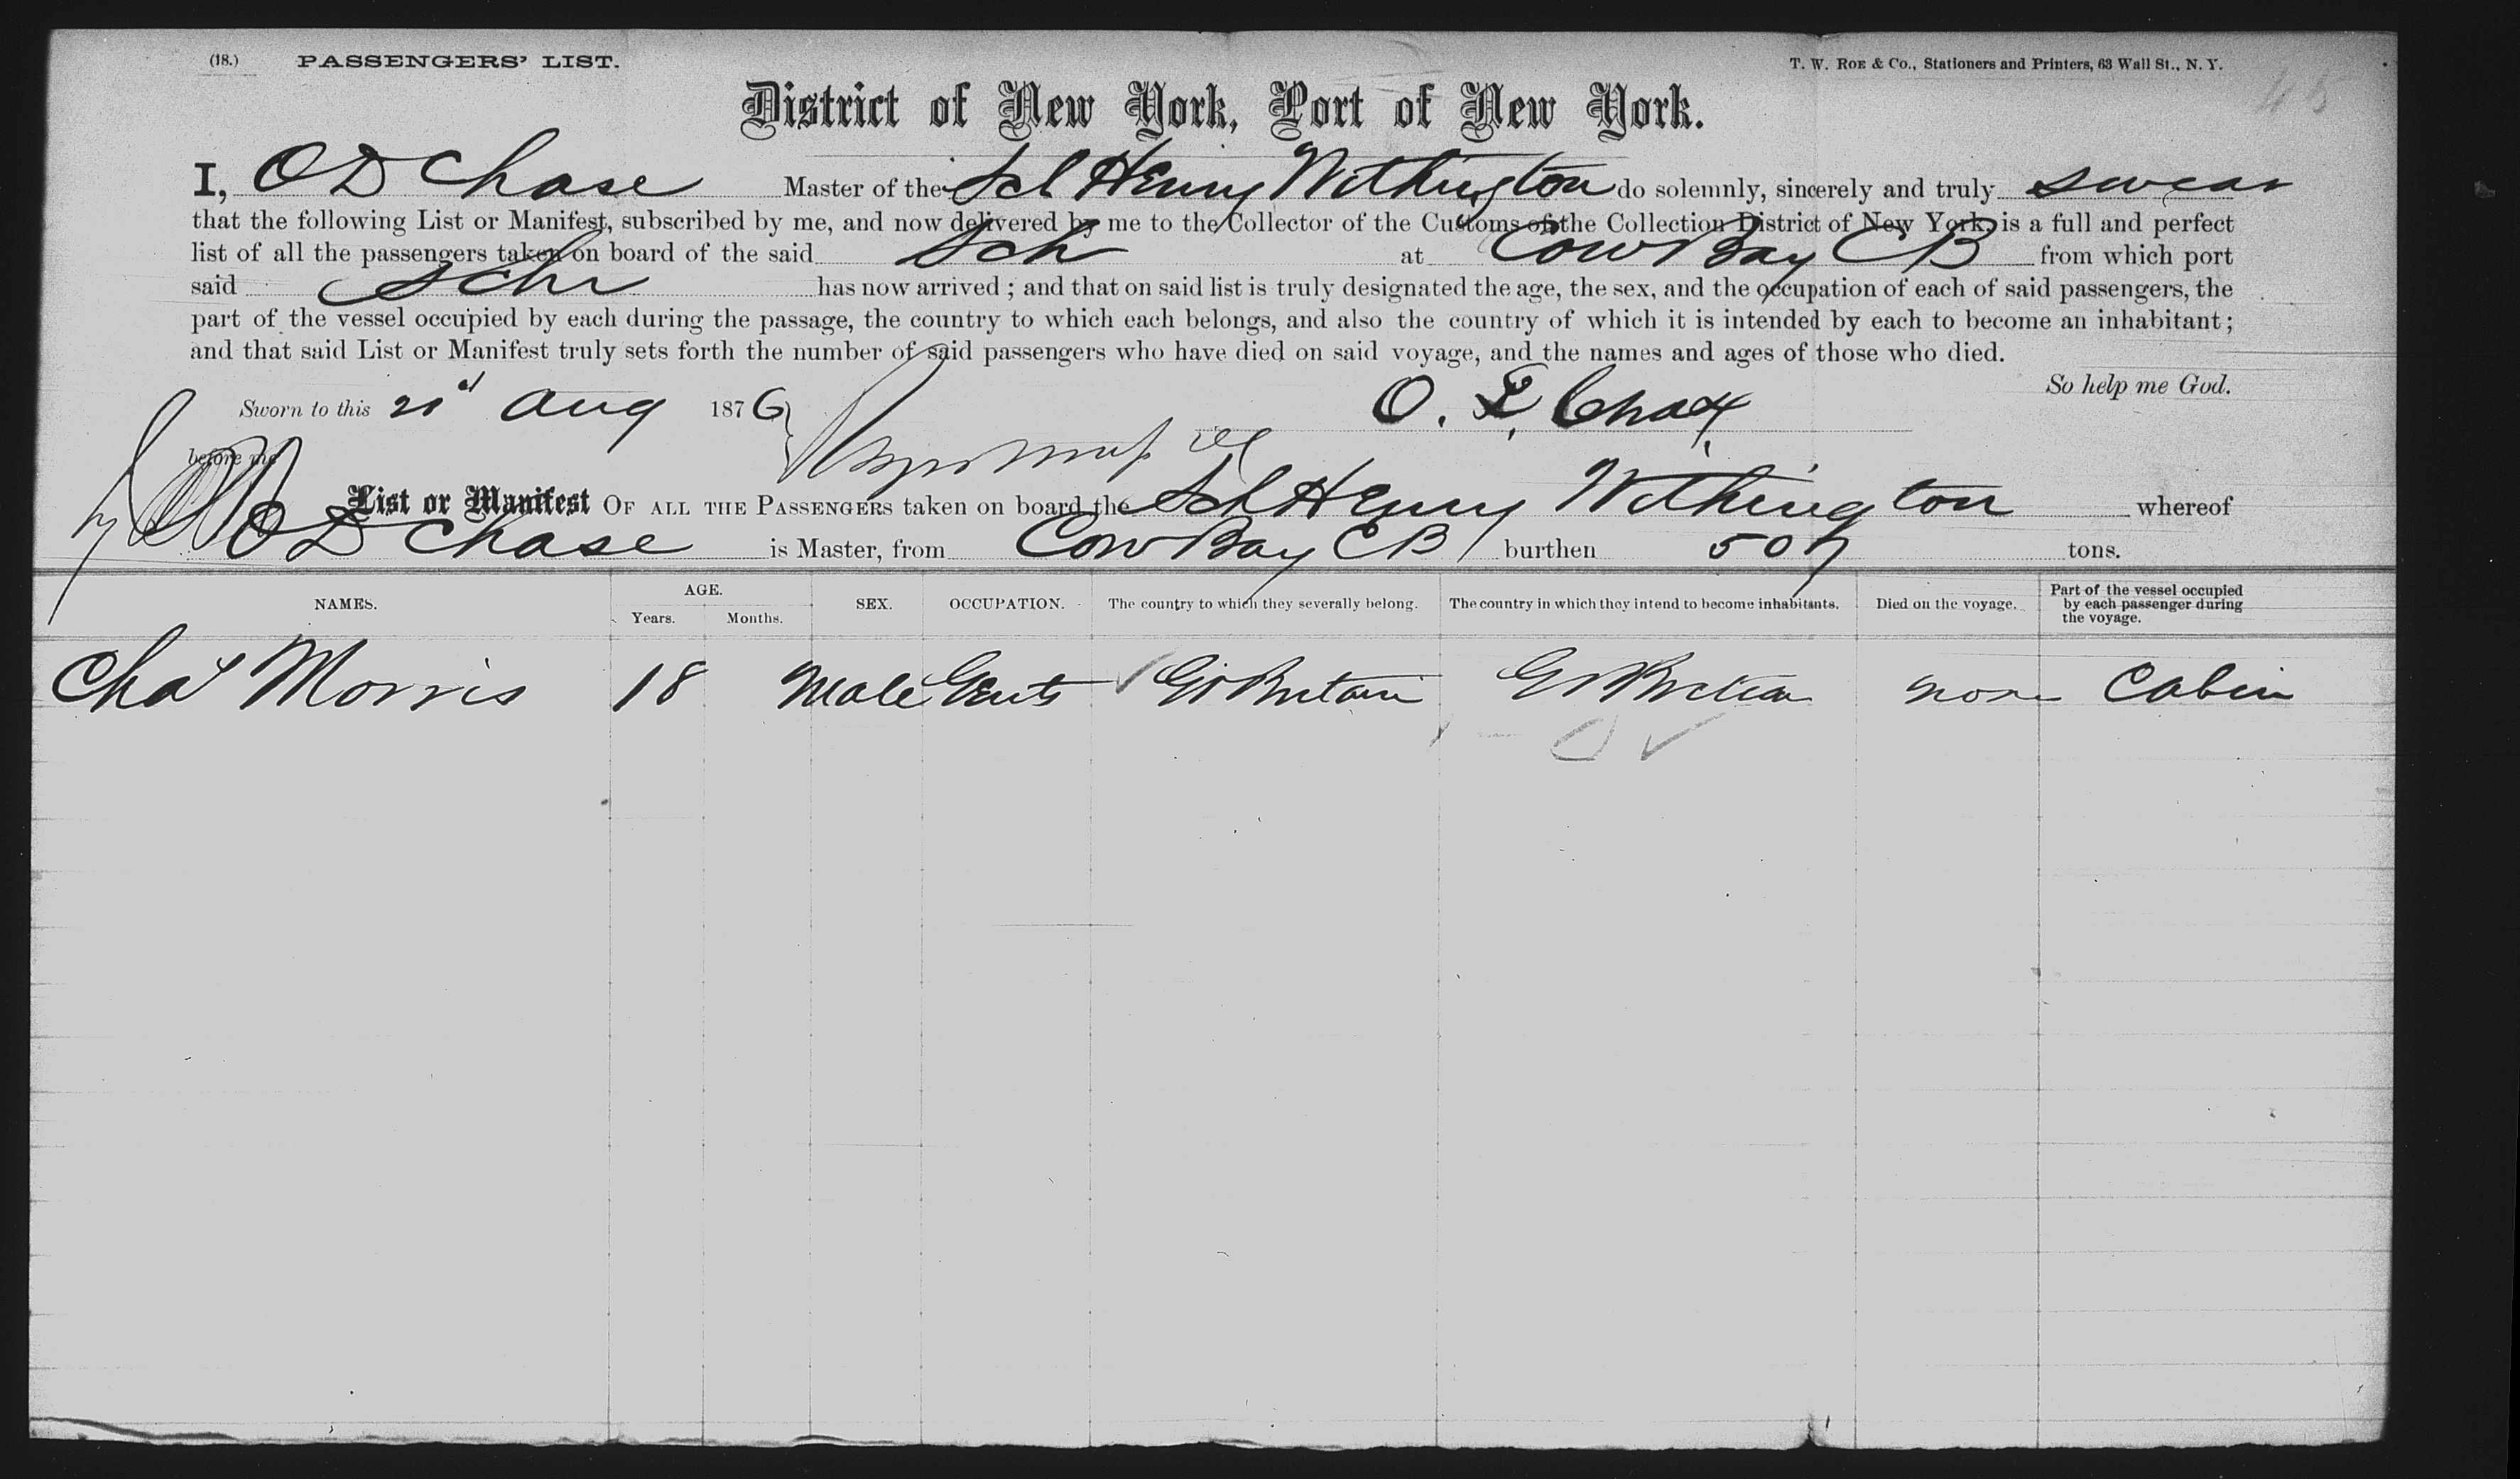 (18.) PASSENGERS' LIST. T. W. ROE & Co., Stationers and Printers, 63 Wall St., N. Y.
District of New York, Port of New York.
I, O D Chase Master of the Sch Henry Withington do solemnly, sincerely and truly swear
that the following List or Manifest, subscribed by me, and now delivered by me to the Collector of the Customs of the Collection District of New York, is a full and perfect
list of all the passengers taken on board of the said Sch at Cow Bay CB from which port
said Schr has now arrived; and that on said list is truly designated the age, the sex, and the occupation of each of said passengers, the
part of the vessel occupied by each during the passage, the country to which each belongs, and also the country of which it is intended by each to become an inhabitant;
and that said List or Manifest truly sets forth the number of said passengers who have died on said voyage, and the names and ages of those who died.
So help me God.
Sworn to this Aug 1876 O. D. Chase
before me
List or Manifest OF ALL THE PASSENGERS taken on board the Sch Henry Withington whereof
O D Chase is Master, from Cow Bay CB burthen tons.
NAMES. AGE. Years. Months. SEX. OCCUPATION. The country to which they severally belong. The country in which they intend to become inhabitants. Died on the voyage. Part of the vessel occupied by each passenger during the voyage.
Chas Morris 18 Male Gents Gr Britain Gr Britain none Cabin